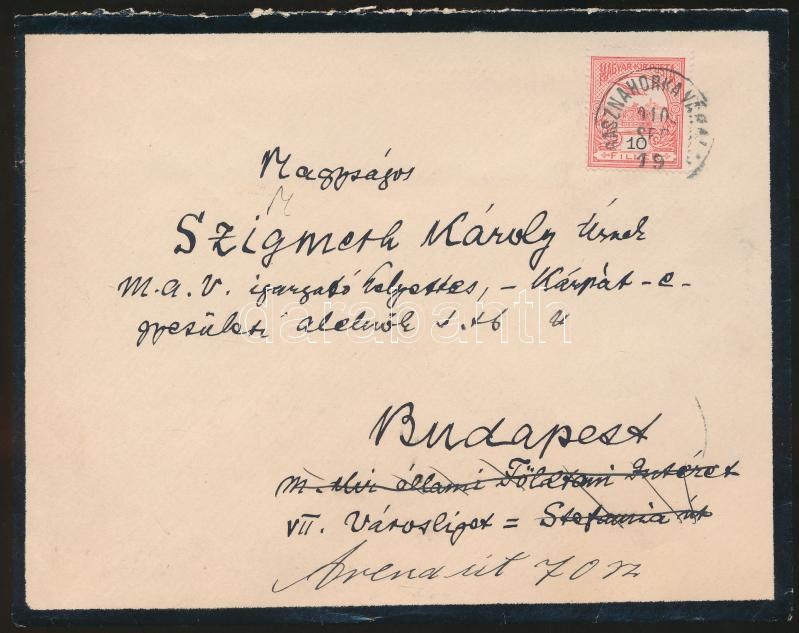 MAGYAR·KIR·POSTA
KRASZNAHORKAVÁRALJA
910
SEP
19
10
FILLÉR
Nagyságos
Szigmeth Károly Úrnak
M.a.V. igazgató helyettes, – Kárpát-e-
gyesületi alelnök s.tb
Budapest
m. kir állami Földtani Intézet
VII. Városliget = Stefania út
Arena út 70 sz
darabanth